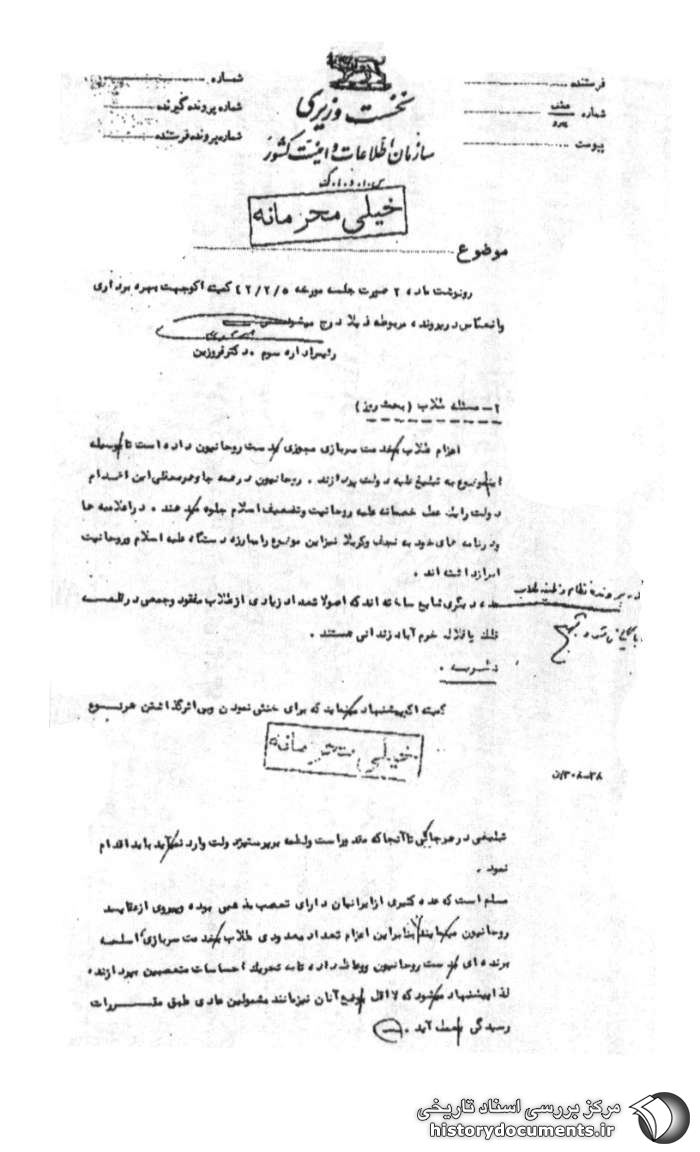 شماره
شماره پرونده گیرنده
شماره پرونده فرستنده
نخست وزیری
سازمان اطلاعات و امنیت کشور
س.ا.و.ا.ک
فرستنده
شماره
پیوست
خیلی محرمانه
موضوع
رونوشت ماده ۲ صورت جلسه مورخه ۴۲/۲/۵ کمیته اکو جهت بهره برداری
وانعکاس در پرونده مربوطه ذیلا درج میشود
رئیس اداره سوم . دکتر فروزین
۲ – مسئله طلاب (بحث روز)
اعزام طلاب بخدمت سربازی مجوزی بدست روحانیون داده است تا بوسیله
این موضوع به تبلیغ علیه دولت بپردازند . روحانیون در همه جا و هر محفلی این اقدام
دولت را یک عمل خصمانه علیه روحانیت وتضعیف اسلام جلوه میدهند . در اعلامیه ها
ودر نامه های خود به نجف وکربلا نیز این موضوع را مبارزه دستگاه علیه اسلام وروحانیت
ابراز داشته اند .
عده دیگری شایع ساخته اند که اصولا تعداد زیادی از طلاب مفقود وجمعی در قلعه
فلک یا فلاک خرم آباد زندانی هستند .
در پرونده نظام وظیفه طلاب
بایگانی شود
نظریه .
کمیته اکو پیشنهاد مینماید که برای خنثی نمودن وبی اثر گذاشتن هر نوع
خیلی محرمانه
۲۸-۳۰۸/ن
تبلیغی در هر جائی تا آنجا که مقدور است ولطمه بر پرستیژ دولت وارد نمیآید باید اقدام
نمود .
مسلم است که عده کثیری از ایرانیان دارای تعصب مذهبی بوده وپیروی از عقاید
روحانیون مینمایند بنابراین اعزام تعداد معدودی طلاب بخدمت سربازی اسلحه
برنده ای بدست روحانیون ووعاظ داده تا به تحریک احساسات متعصبین بپردازند
لذا پیشنهاد میشود که لااقل بوضع آنان نیز مانند مشمولین عادی طبق مقررات
رسیدگی بعمل آید .
مرکز بررسی اسناد تاریخی
historydocuments.ir